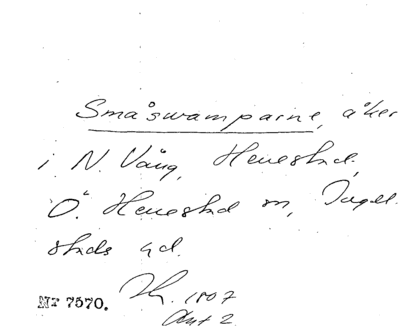 Småswamparne, åker
i N. Vång, Henestad.
Ö. Henestad sn, Ingel-
stads hd.
Nr 7570. 1807
Akt 2